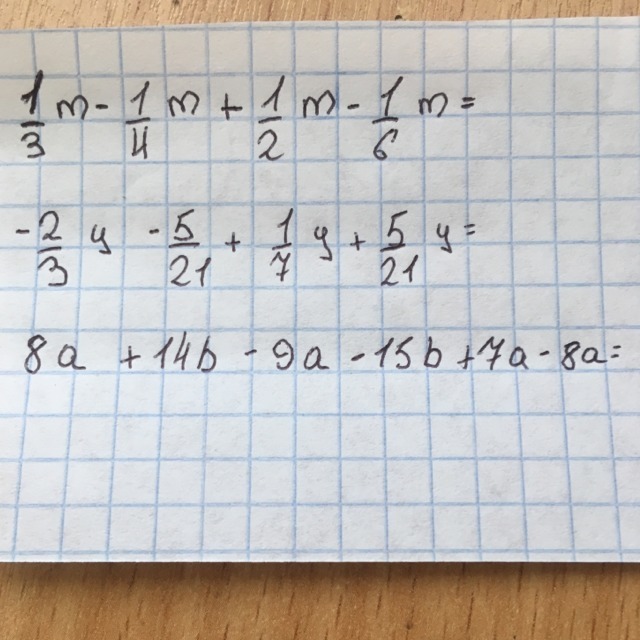 1/3 m - 1/4 m + 1/2 m - 1/6 m =
-2/3 y - 5/21 + 1/7 y + 5/21 y =
8a + 14b - 9a - 15b + 7a - 8a =